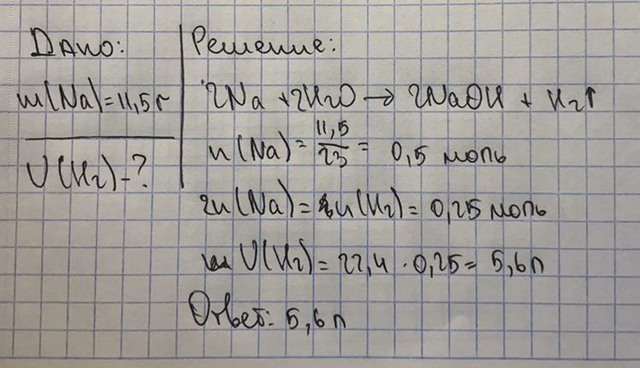 Дано:
m(Na)=11,5г
V(H2)-?
Решение:
2Na + 2H2O → 2NaOH + H2↑
n(Na) = 11,5/23 = 0,5 моль
2n(Na) = n(H2) = 0,25 моль
V(H2) = 22,4 · 0,25 = 5,6л
Ответ: 5,6л